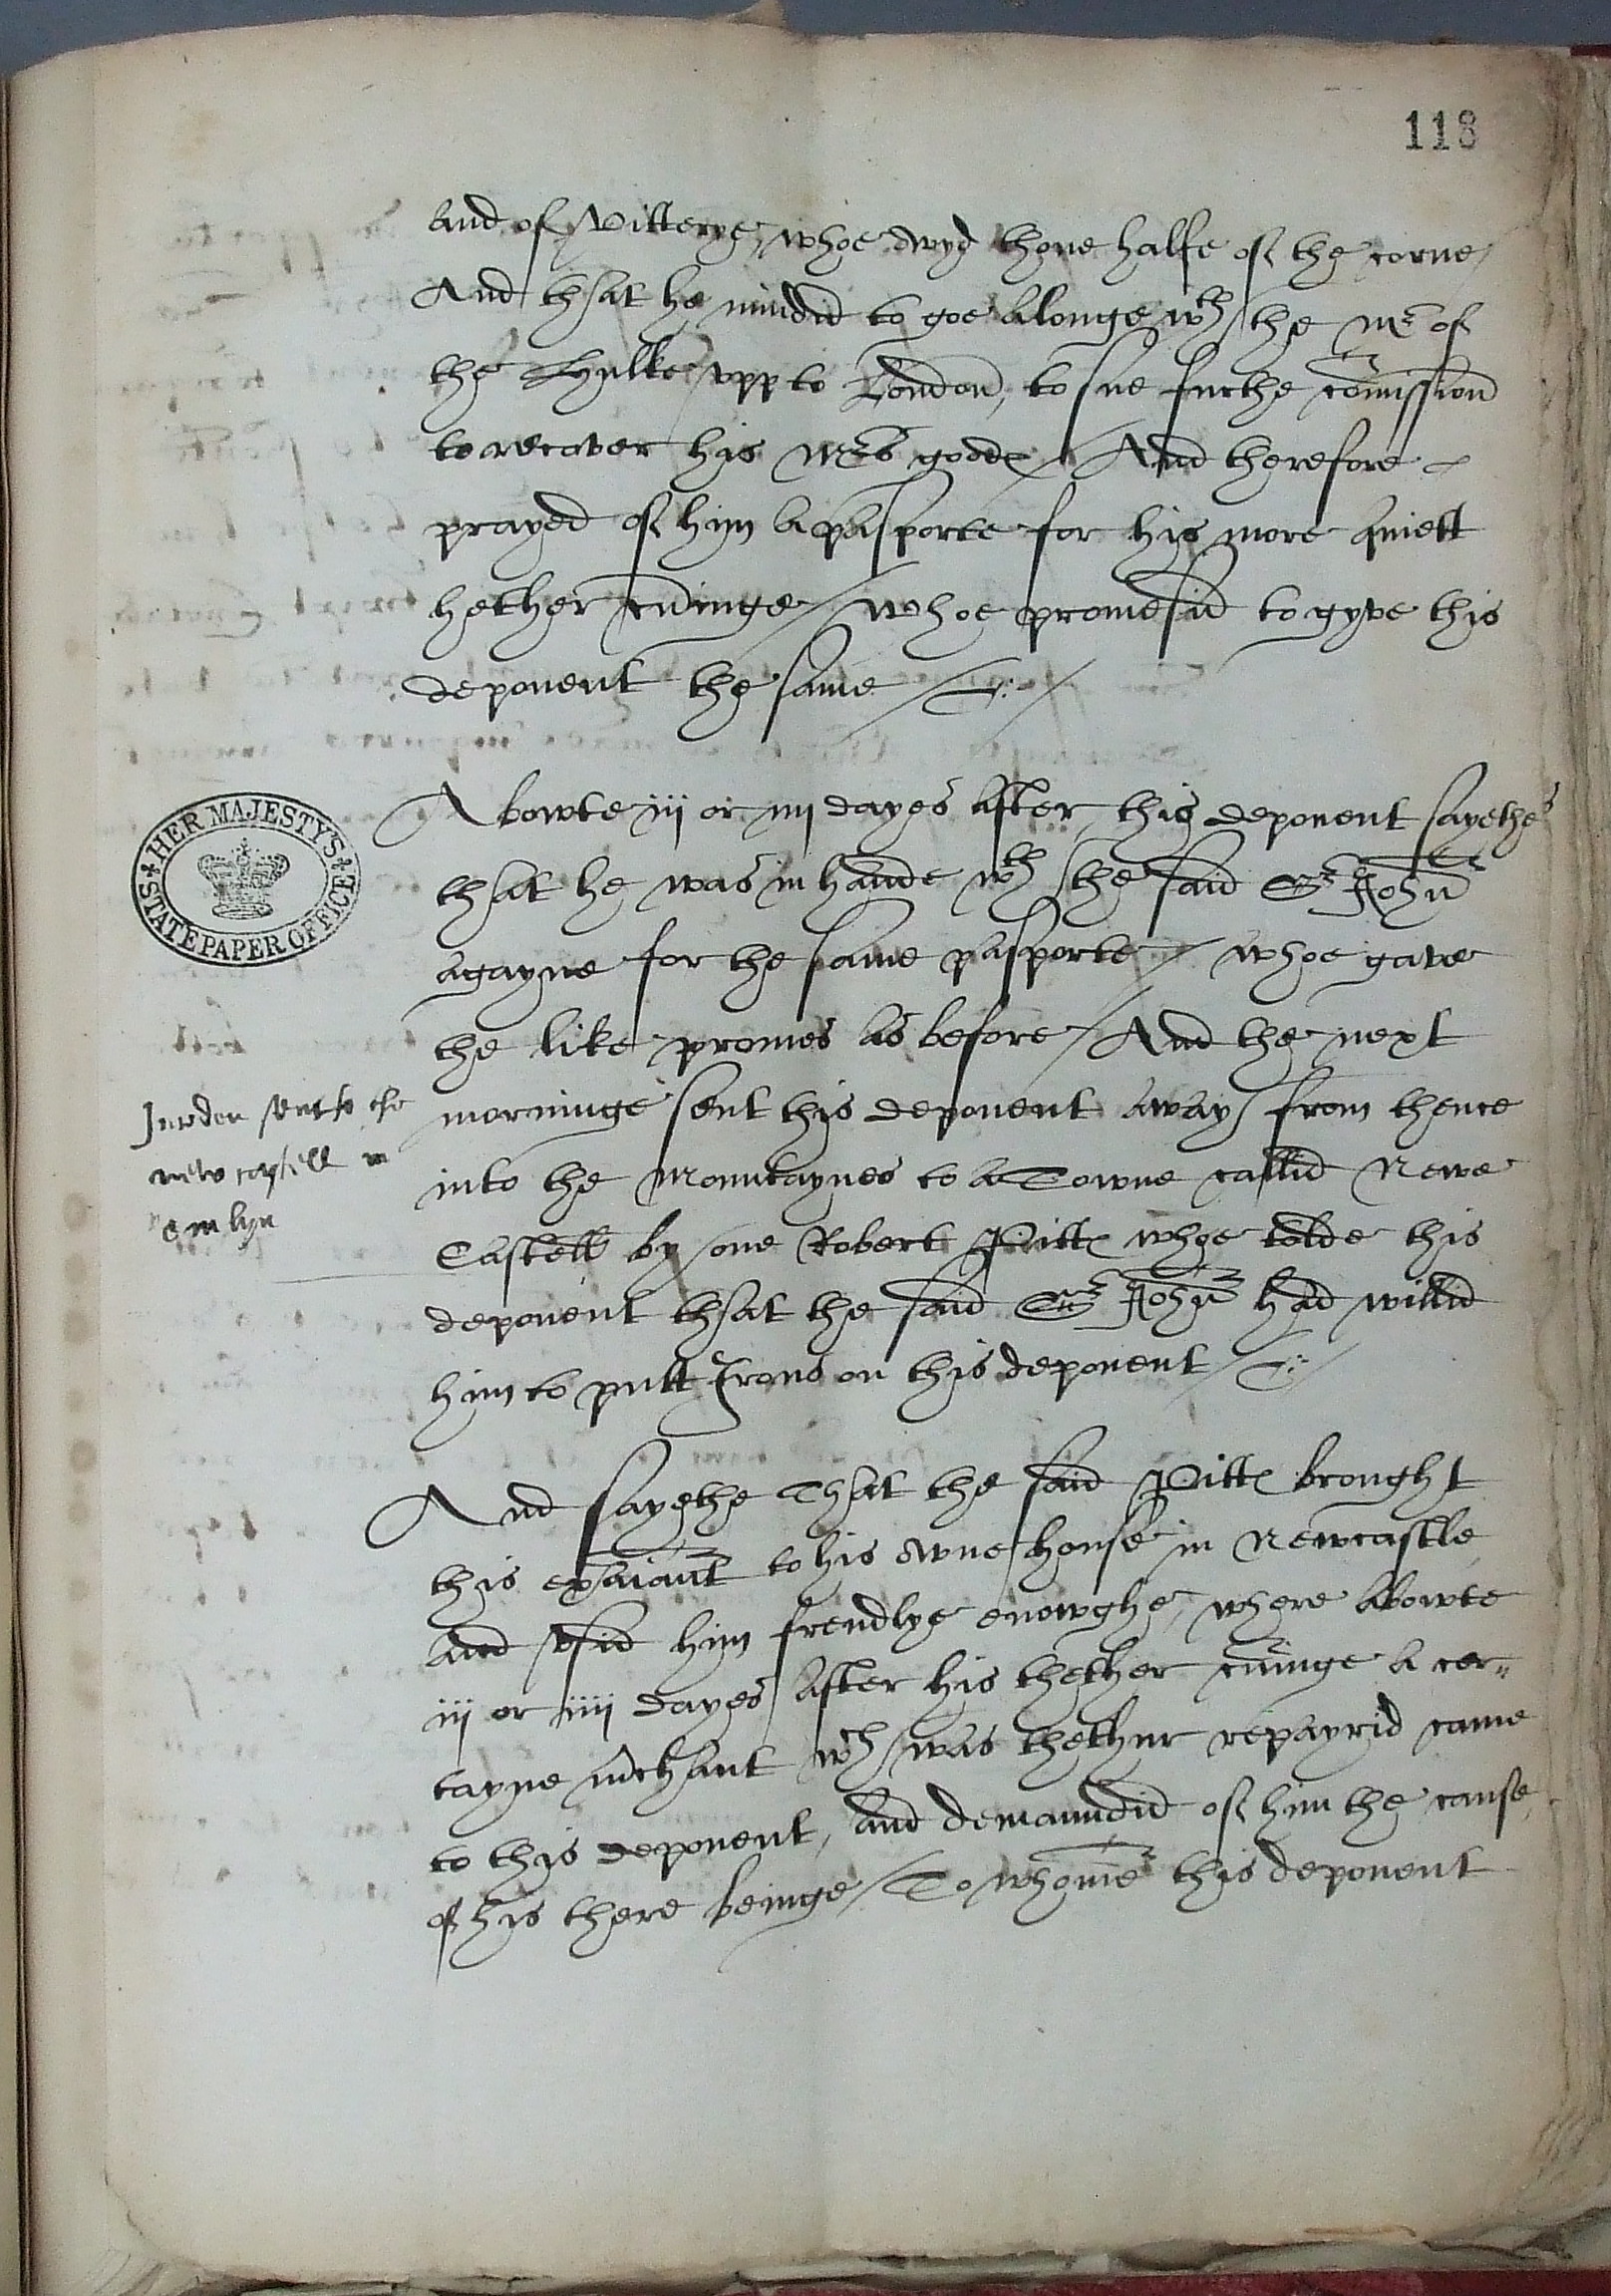 118
and of Vitterye, whoe owyd thone halfe of the corne /
And that he mindid to goe alonge wth the Mr of
the Hulke vpp to London, to sue furthe comission
to recover his Mrs goodes / And therefore
prayed of hym a pasporte for his more quiett
hether cuminge / whoe promesid to gyve this
deponent the same /
Abowte iij or iiij dayes after, this deponent sayethe
that he was in hande wth the said Sr John
agayne for the same pasporte / whoe gave
the like promes as before / And the next
morninge sent this deponent away from thence
into the Mountaynes to a Towne callid Newe
Castell by one Robert Pittes whoe tolde this
deponent that the said Sr John had willid
him to putt Irons on this deponent /
And sayethe That the said Pittes brought
this exaiant to his owne house in Newcastle
and vsid hym frendlye enowghe, where abowte
iij or iiij dayes after his thether cuminge a cer=
tayne mchant wch was thethur repayrid came
to this deponent, and demaundid of him the cause
of his there beinge / To whome this deponent
HER MAJESTY'S
STATE PAPER OFFICE
Jurden sent to the
new castell in
emlyn